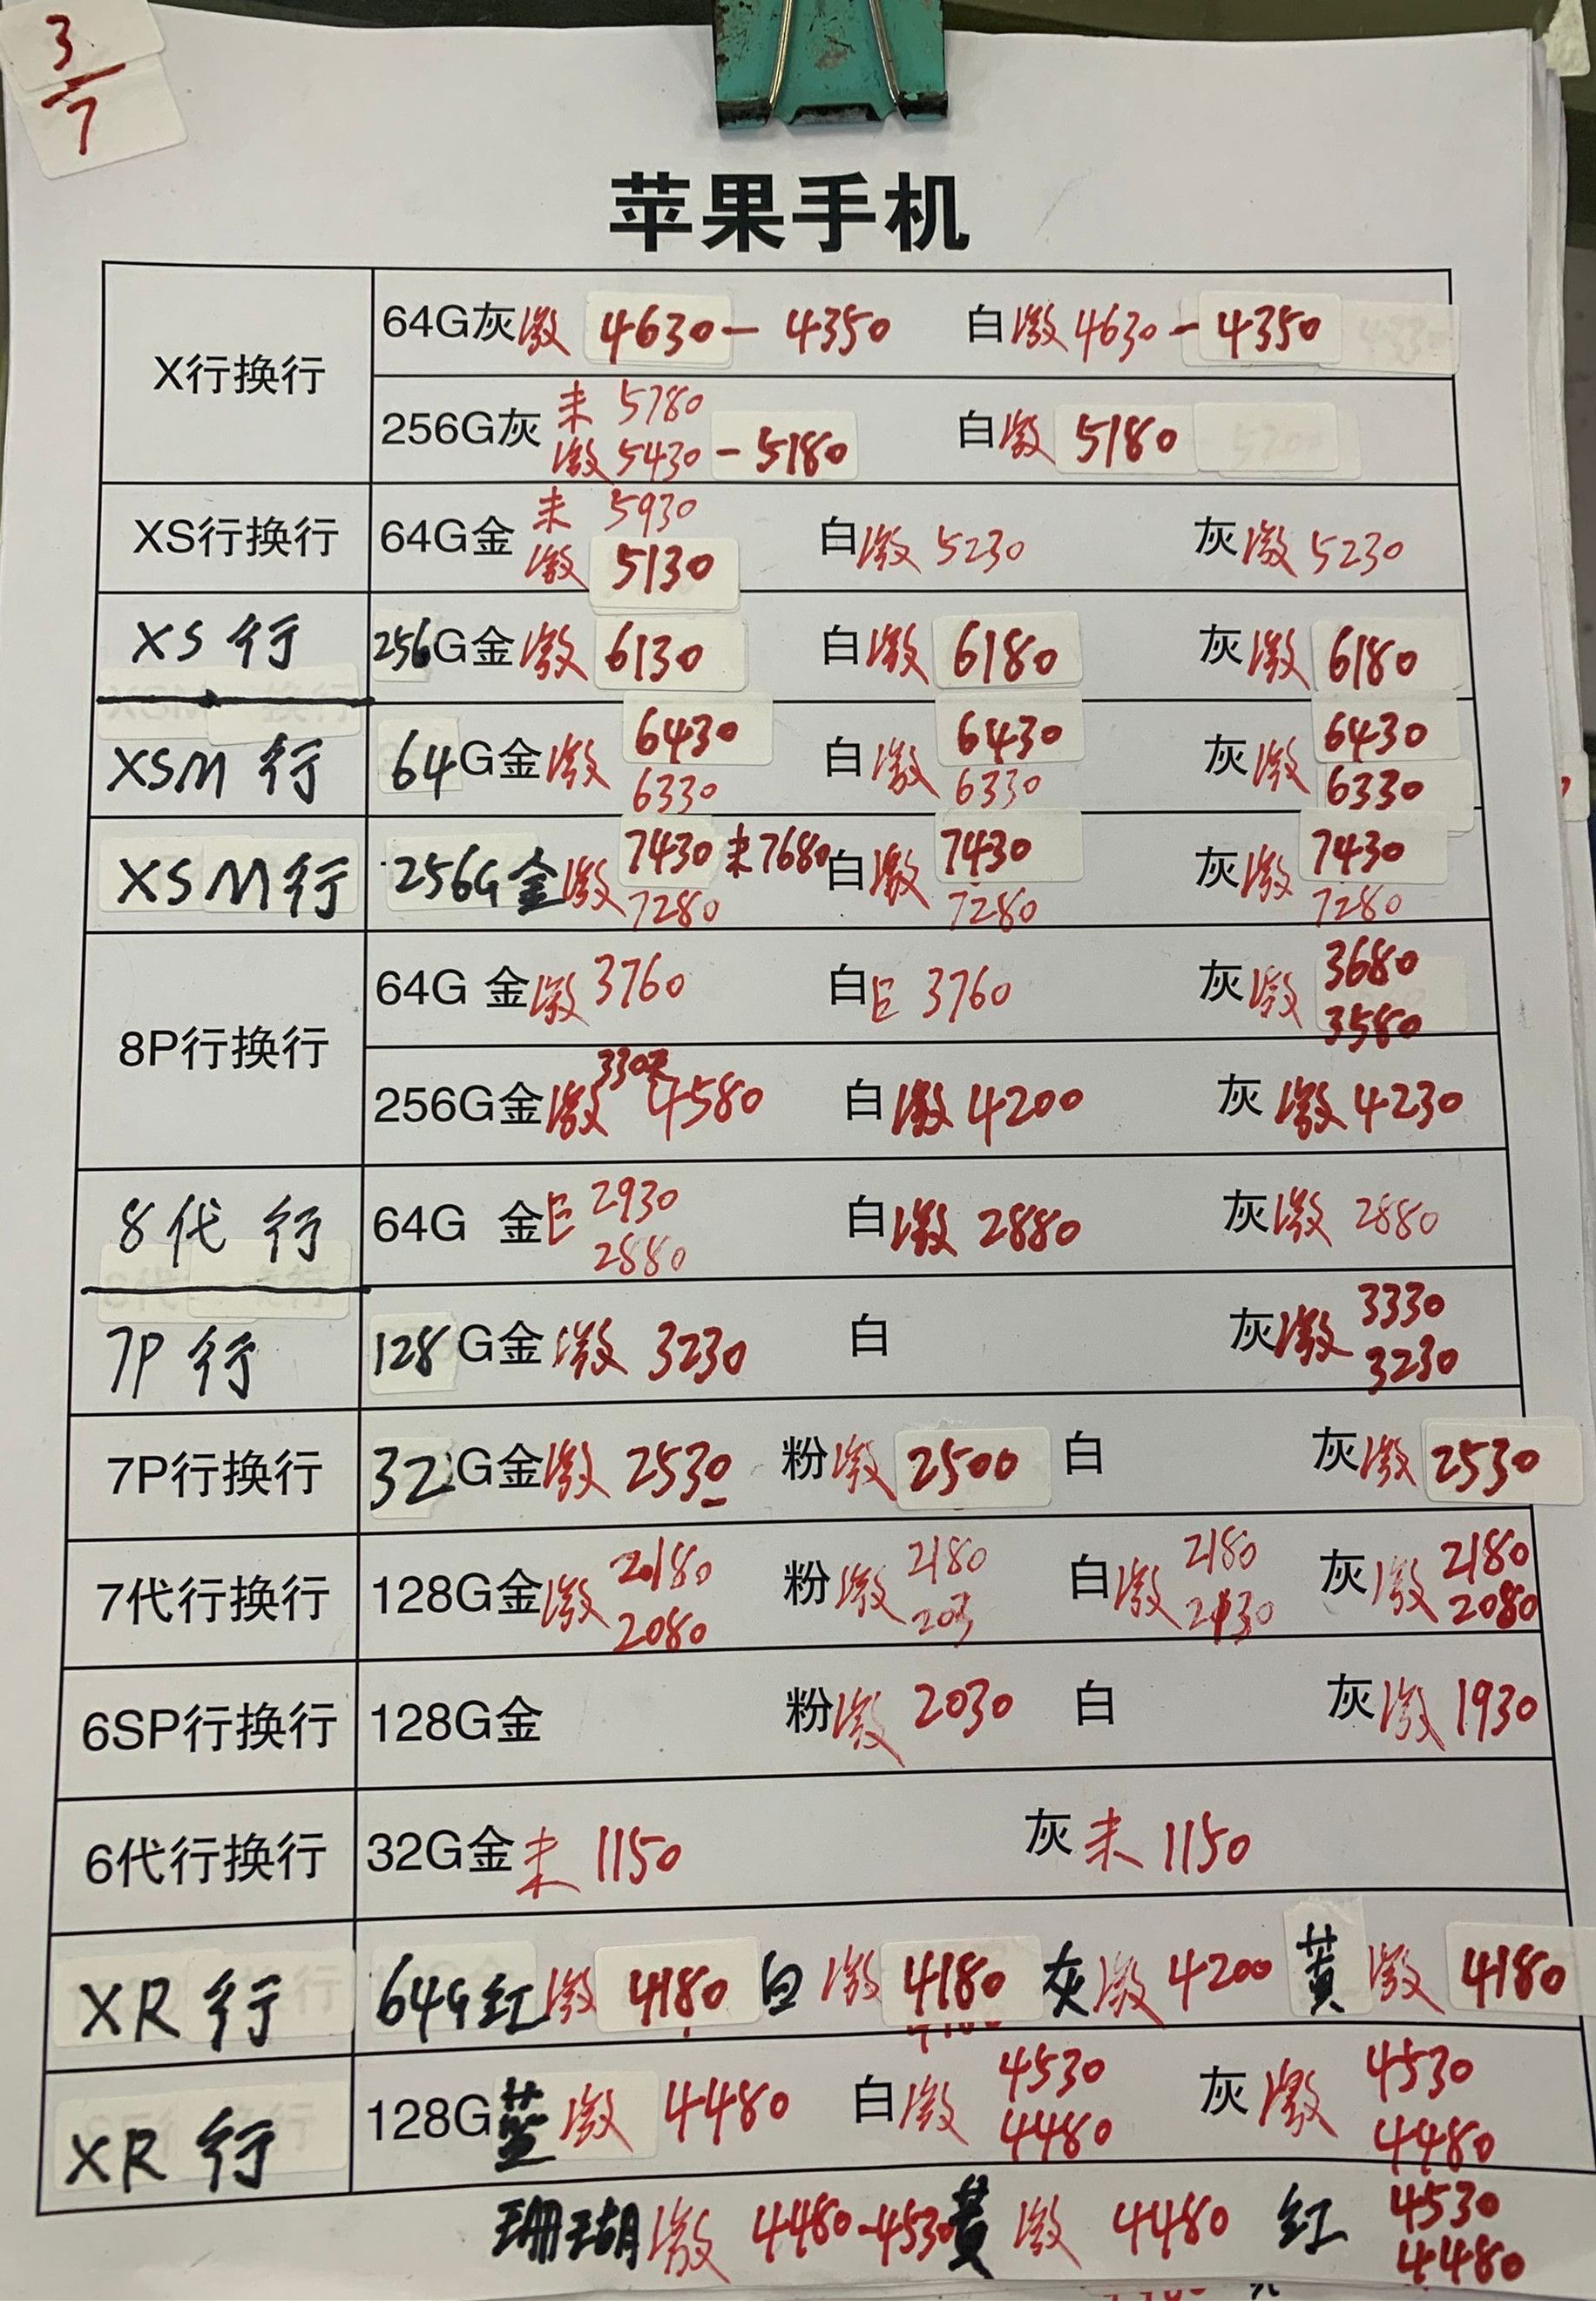 3/7
苹果手机
X行换行
64G灰激 4630-4350 白激4630-4350
256G灰 未 5780
激5430-5180 白激 5180
XS行换行
64G金 未 5930
激 5130 白激 5230 灰激 5230
XS行
256G金激 6130 白激 6180 灰激 6180
XSM 行
64G金激 6430 白激 6430 灰激 6430
6330 6330 6330
XSM行
256G金激 7430 未7680 白激 7430 灰激 7430
7280 7280 7280
8P行换行
64G 金激 3760 白 3760 灰激 3680
3580
256G金激 330天 4580 白激 4200 灰激 4230
8代 行
64G 金 2930 白激 2880 灰激 2880
2880
7P 行
128G金激 3230 白 灰激 3330
3230
7P行换行
32G金激 2530 粉激 2500 白 灰激 2530
7代行换行
128G金激 2180 粉激 2180 白激 2180 灰激 2180
2080 203 2130 2080
6SP行换行
128G金 粉激 2030 白 灰激 1930
6代行换行
32G金未 1150 灰未 1150
XR 行
64G红激 4180 白激 4180 灰激 4200 黄激 4180
XR 行
128G蓝激 4480 白激 4530 灰激 4530
4480 4480
珊瑚激 4480-4530 黄激 4480 红 4530
4480